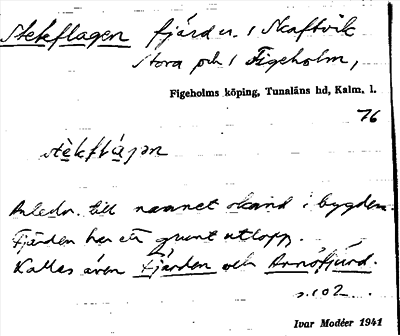 Stekflagen fjärd u. 1 Skaftvik
Stora och 1 Figeholm,
Figeholms köping, Tunaläns hd, Kalm. l.
76
stèkflágan
Anledn. till namnet okänd i bygden.
Fjärden har ett grunt utlopp.
Kallas även Fjärden och Arnöfjärd.
s. 102.
Ivar Modéer 1941